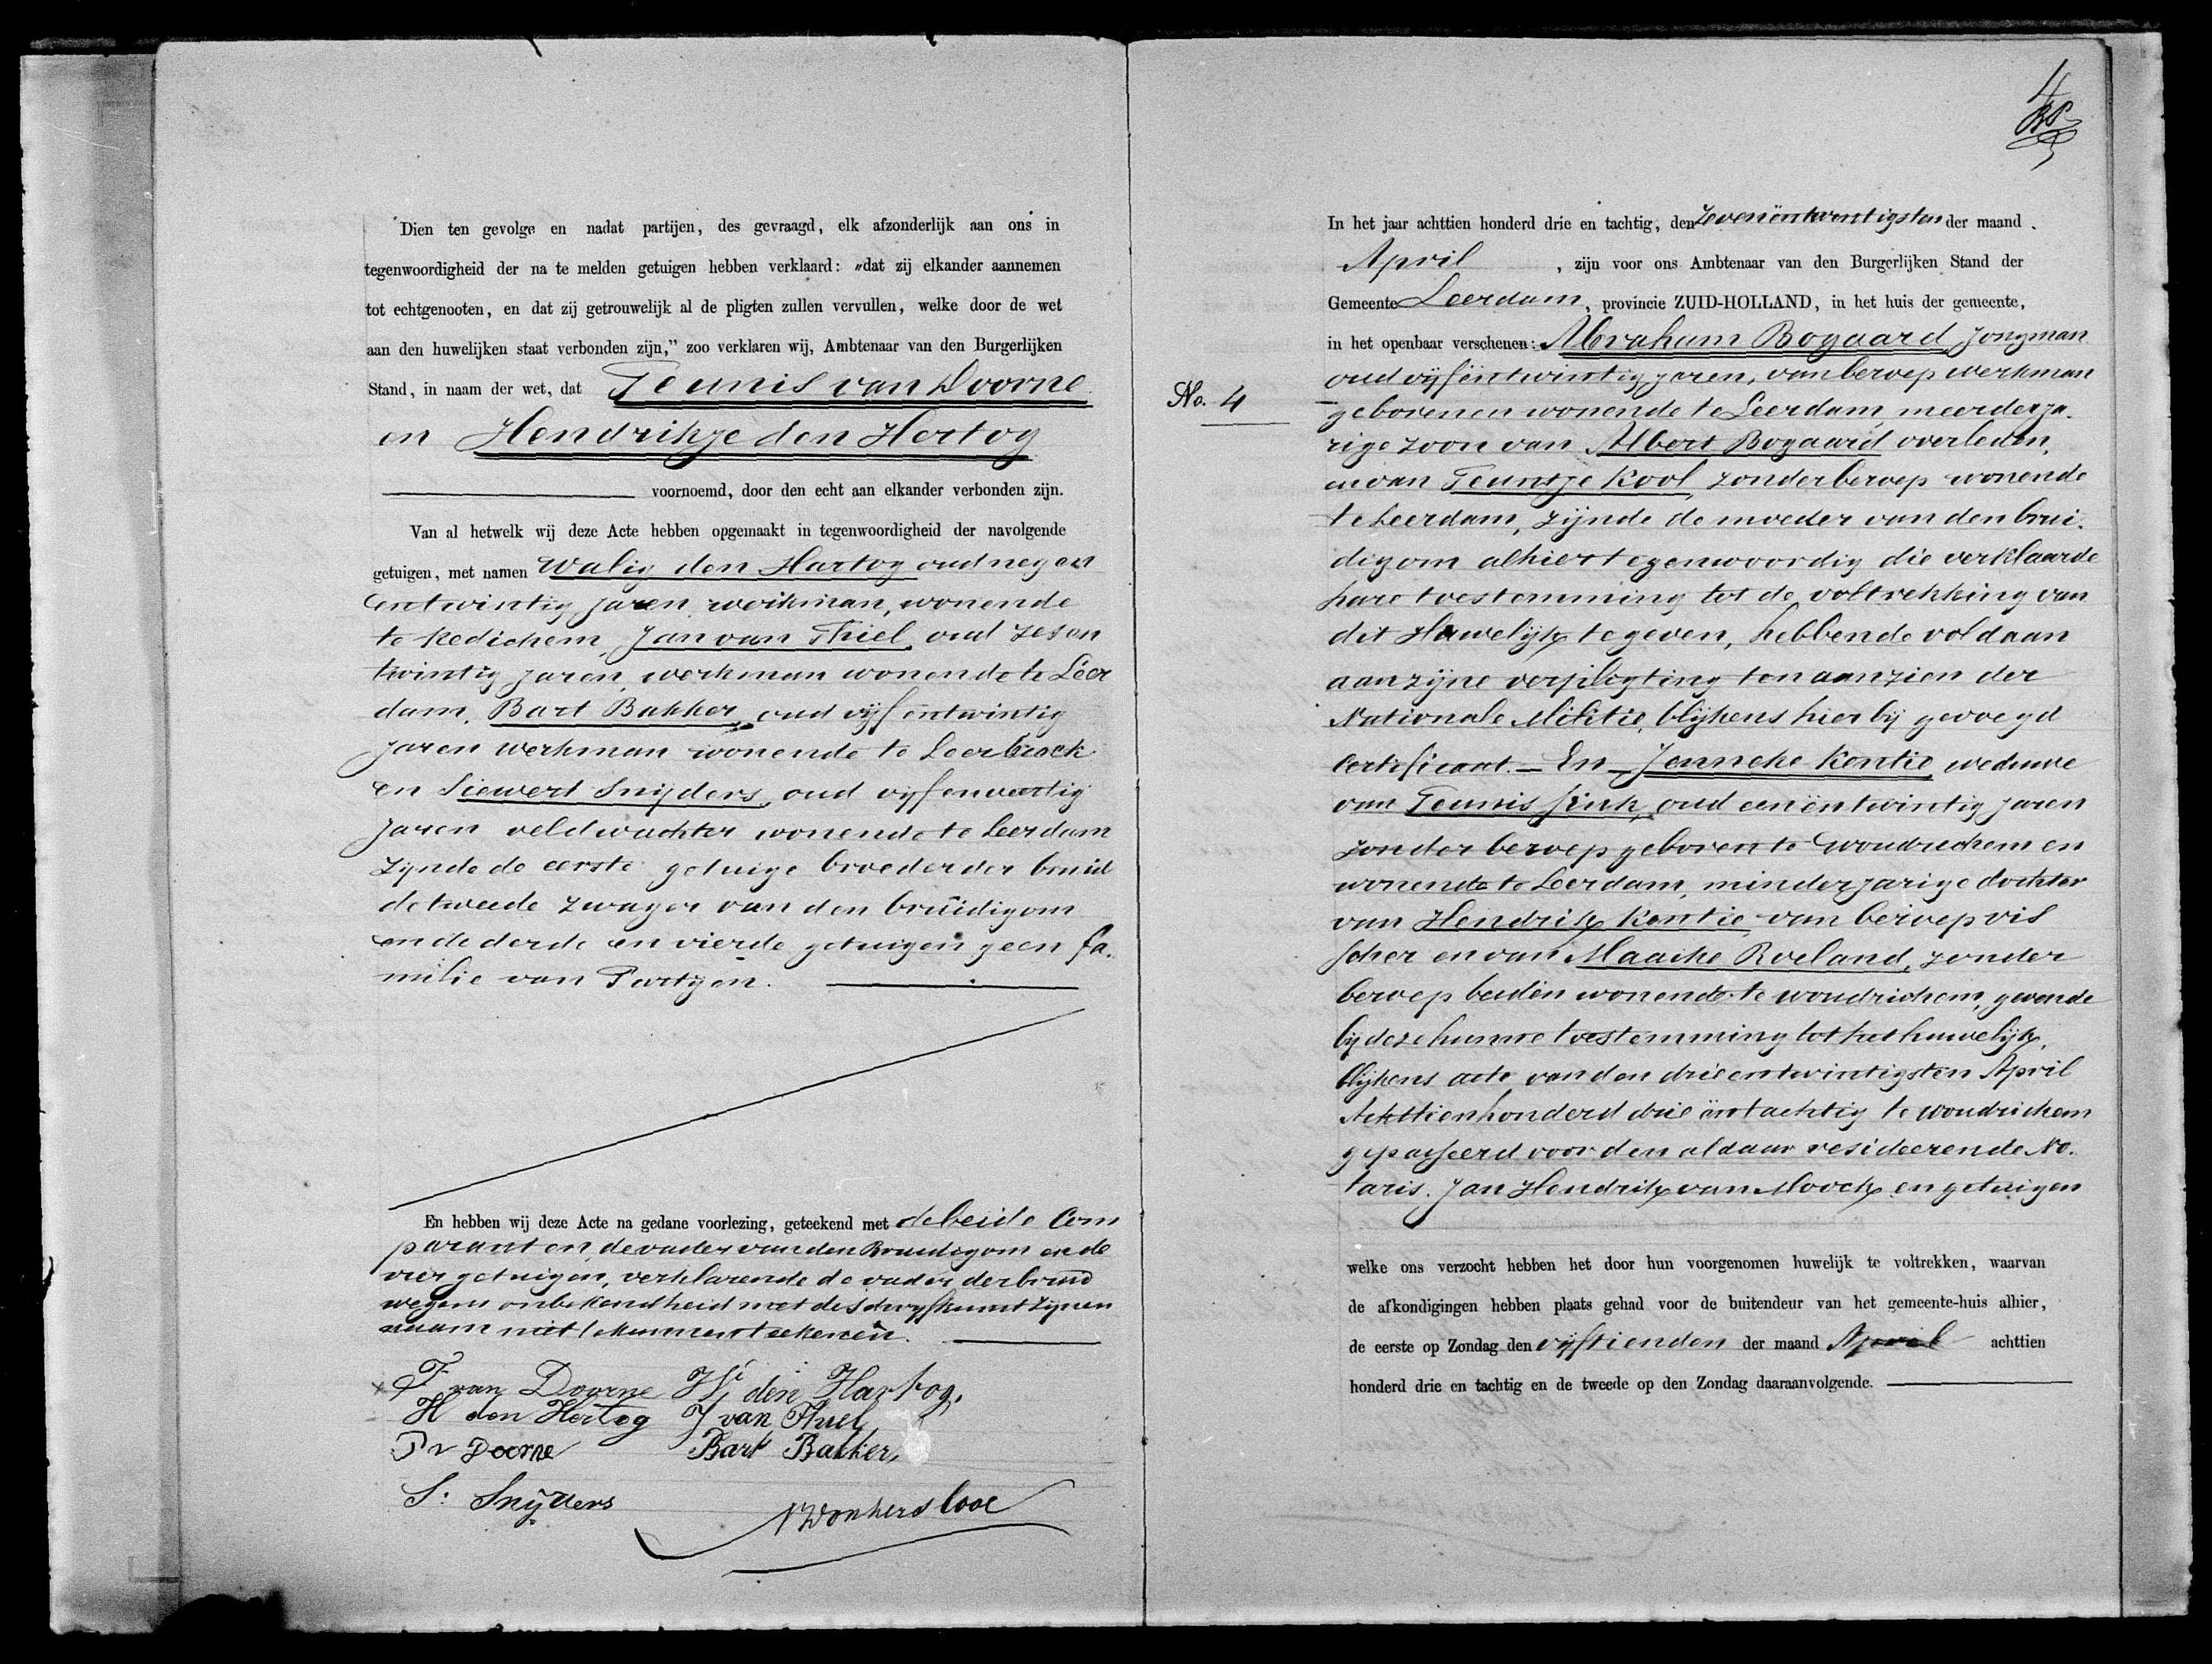 Dien ten gevolge en nadat partijen, des gevraagd, elk afzonderlijk aan ons in
tegenwoordigheid der na te melden getuigen hebben verklaard: „dat zij elkander aannemen
tot echtgenooten, en dat zij getrouwelijk al de pligten zullen vervullen, welke door de wet
aan den huwelijken staat verbonden zijn,” zoo verklaren wij, Ambtenaar van den Burgerlijken
Stand, in naam der wet, dat Teunis van Doorne
en Hendrikje den Hertog
voornoemd, door den echt aan elkander verbonden zijn.
Van al hetwelk wij deze Acte hebben opgemaakt in tegenwoordigheid der navolgende
getuigen, met namen Walig den Hartog oud negen
entwintig jaren werkman, wonende
te Kedichem, Jan van Thiel, oud zesen
twintig jaren, werkman wonende te Leer
dam, Bart Bakker, oud vijf entwintig
jaren werkman wonende te Leerbroek
en Siewert Snijders, oud vijfenveertig
jaren veldwachter wonende te Leerdam
zijnde de eerste getuige broeder der bruid
de tweede zwager van den bruidigom
en de derde en vierde getuigen geen fa-
milie van Partijen.
En hebben wij deze Acte na gedane voorlezing, geteekend met de beide Com
paranten, de vader van den Bruidigom en de
vier getuigen, verklarende de vader der bruid
wegens onbekendheid met de Schrijfkunst zijnen
naam niet te kunnen teekenen.
T van Doorne W den Hartog.
H den Hertog J van Thiel
P v Doorne Bart Bakker,
S: Snijders
4
In het jaar achttien honderd drie en tachtig, den zevenëntwintigsten der maand
April , zijn voor ons Ambtenaar van den Burgerlijken Stand der
Gemeente Leerdam, provincie ZUID-HOLLAND, in het huis der gemeente,
in het openbaar verschenen: Abraham Bogaard, jongman
No. 4
oud vijfëntwintig jaren, van beroep werkman
geboren en wonende te Leerdam, meerderja-
rige zoon van Albert Bogaard overleden,
en van Teuntje Kool, zonder beroep wonende
te Leerdam, zijnde de moeder van den brui-
digom alhier tegenwoordig die verklaarde
hare toestemming tot de voltrekking van
dit Huwelijk te geven, hebbende voldaan
aan zijne verpligting ten aanzien der
Nationale Militie, blijkens hier bij gevoegd
Certificaat. — En — Jenneke Kentie weduwe
van Teunis Sink, oud eenëntwintig jaren
zonder beroep geboren te Woudrichem en
wonende te Leerdam, minderjarige dochter
van Hendrik Kentie van beroep vis
scher en van Maaike Roeland, zonder
beroep beiden wonende te Woudrichem, gevende
bij deze hunne toestemming tot het huwelijk,
blijkens acte van den drieentwintigsten April
Achttienhonderd drie ëntachtig te Woudrichem
gepasseerd voor den aldaar resideerende No-
taris. Jan Hendrik van Moock en getuigen
welke ons verzocht hebben het door hun voorgenomen huwelijk te voltrekken, waarvan
de afkondigingen hebben plaats gehad voor de buitendeur van het gemeente-huis alhier,
de eerste op Zondag den vijftienden der maand April achttien
honderd drie en tachtig en de tweede op den Zondag daaraanvolgende.